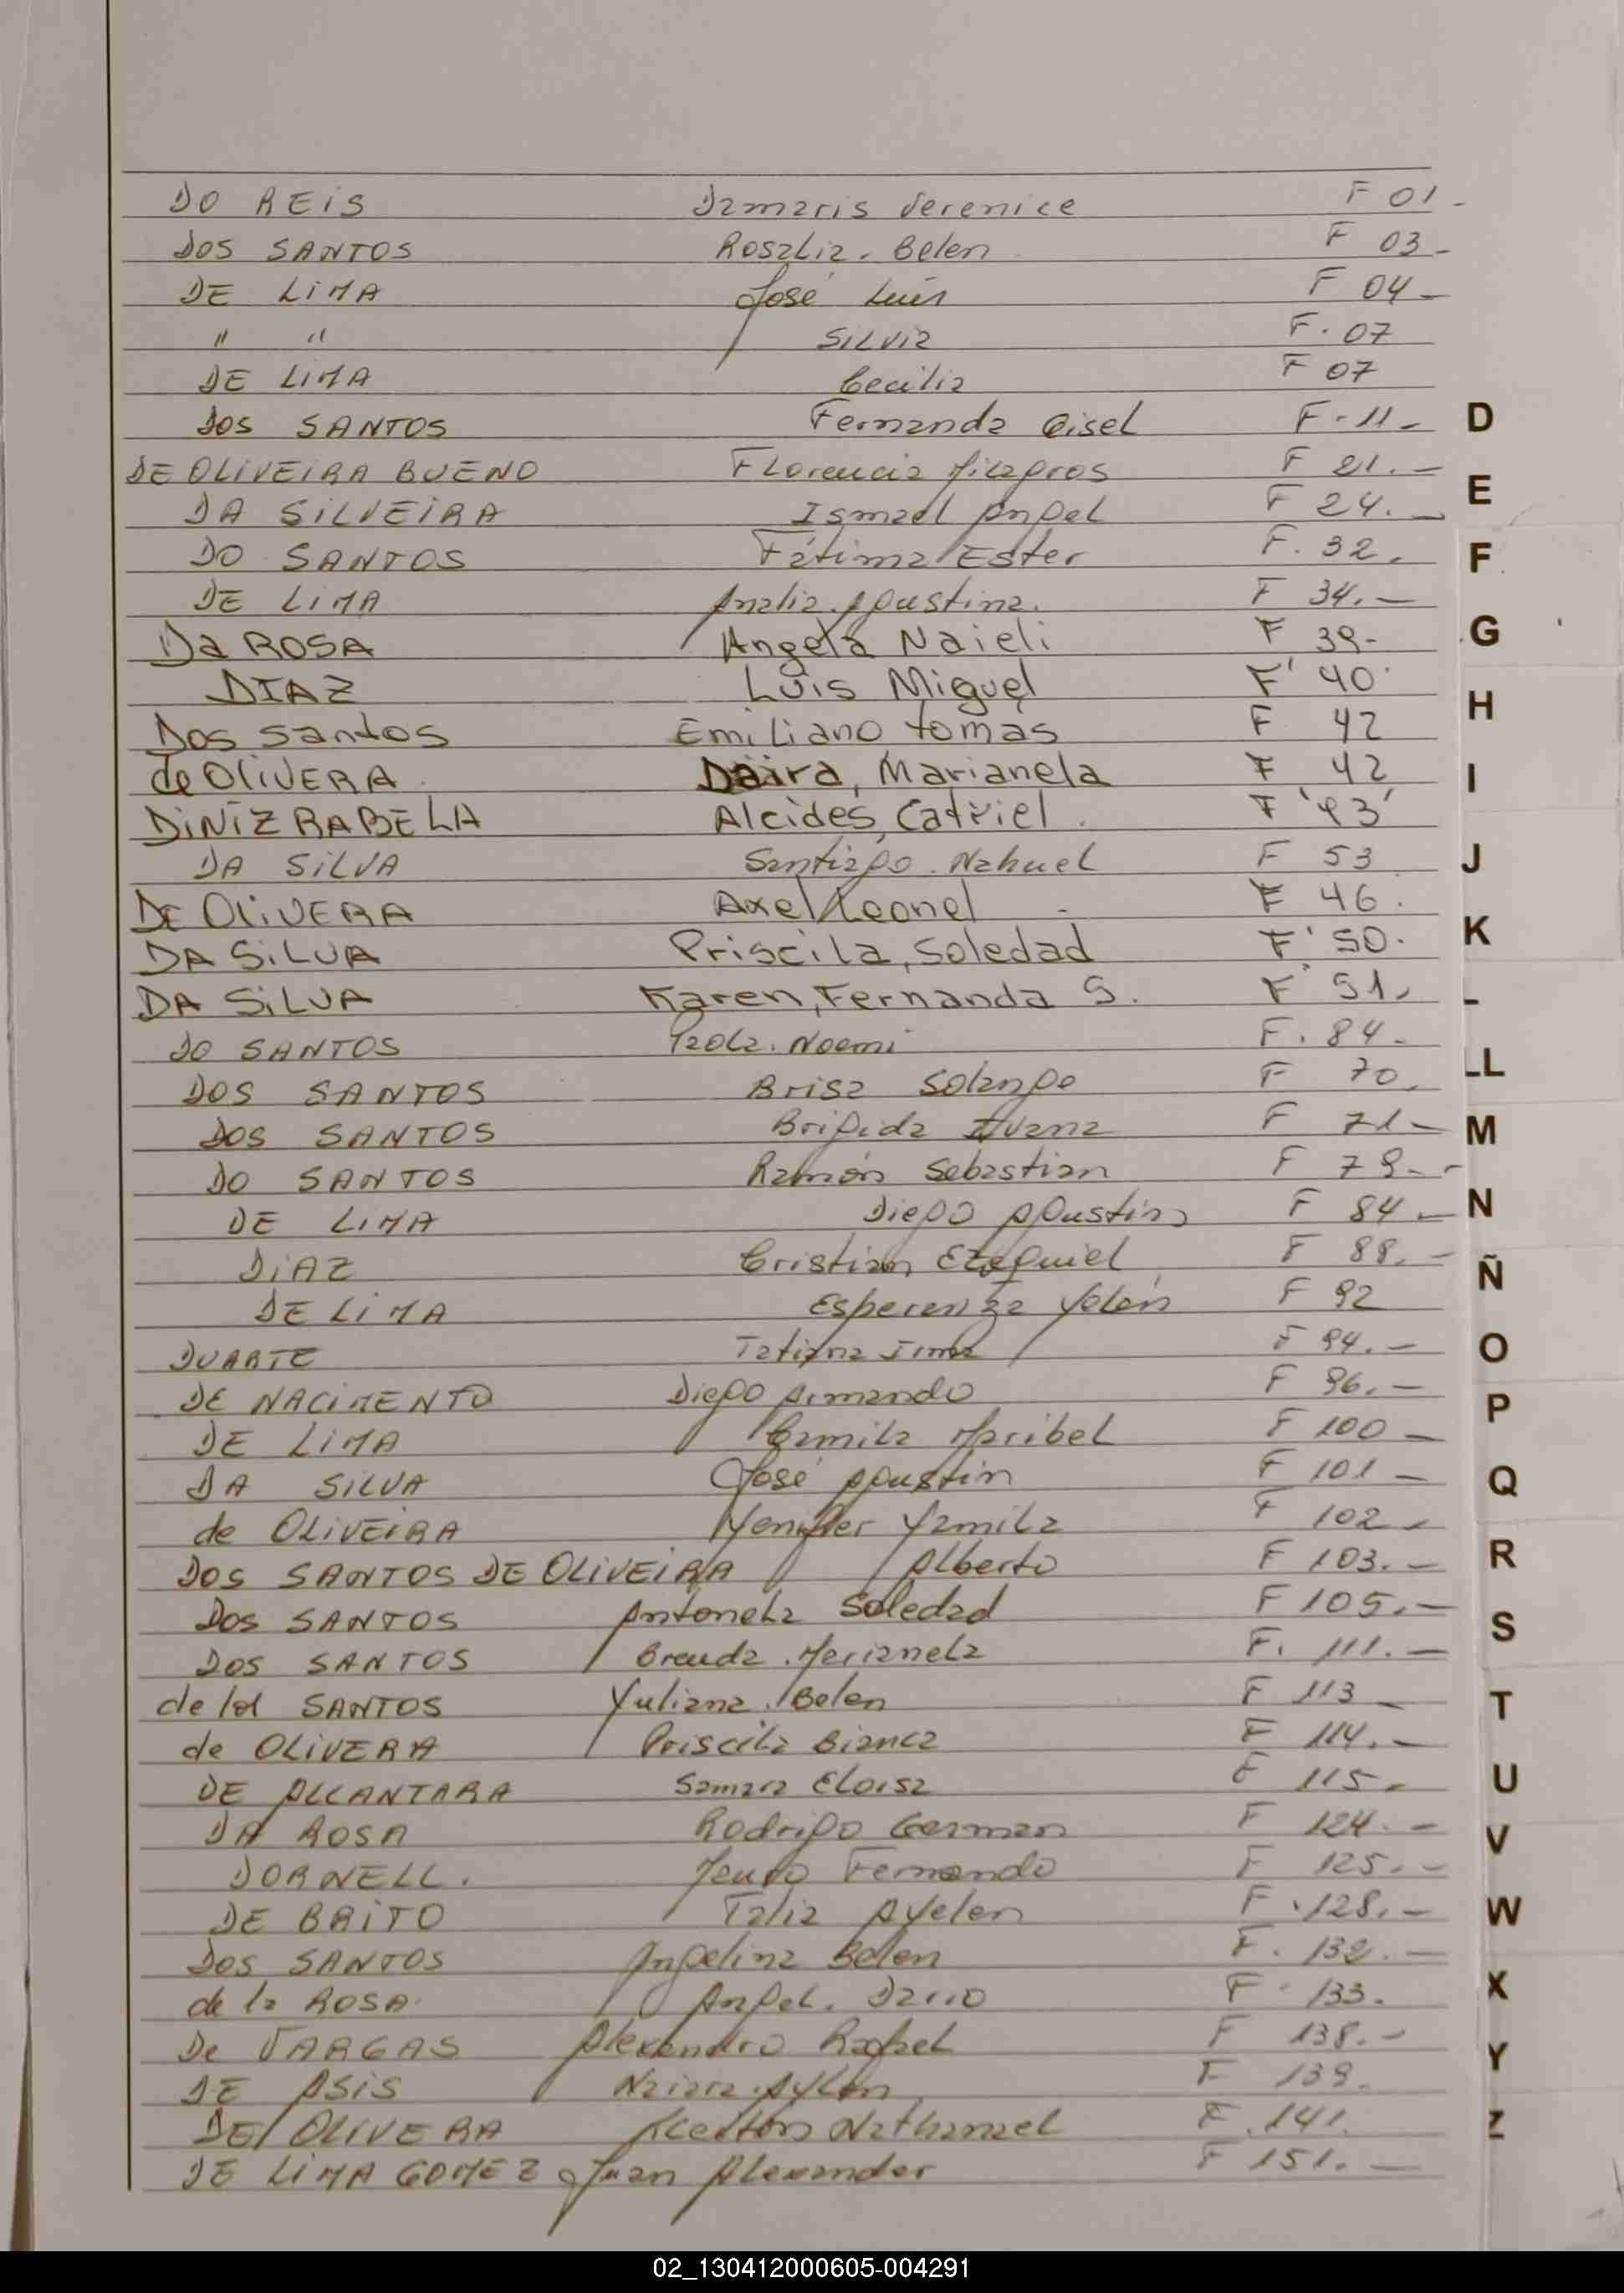 DO REIS Damaris Verenice F 01.
DOS SANTOS Rosalia. Belen F 03-
DE LIMA José Luis F 04-
" " Silvia F. 07
DE LIMA Cecilia F 07
DOS SANTOS Fernanda Gisel F. 11-
D
DE OLIVEIRA BUENO Florencia Milagros F 21.-
E
DA SILVEIRA Ismael Angel F 24.-
DO SANTOS Fátima Ester F. 32.
F
DE LIMA Analia. Agustina. F 34.-
Da ROSA Angela Naieli F 39-
G
DIAZ Luis Miguel F 40
H
Dos Santos Emiliano tomas F 42
de OLIVERA Daira, Marianela F 42
I
DINIZ RABELA Alcides, Catriel. F 43
DA SILVA Santiago. Nahuel F 53
J
DE OLIVERA Axel Leonel F 46.
DA SILVA Priscila, Soledad F 50.
K
DA SILVA Karen, Fernanda S. F 51.
DO SANTOS Noemi F. 84-
DOS SANTOS Brisa Solange F 70.
LL
DOS SANTOS Brigida Ivana F 71-
M
DO SANTOS Ramón Sebastian F 79-
DE LIMA Diego Agustin F 84-
N
DIAZ Cristian Ezequiel F 88.-
Ñ
DE LIMA Esperanza Yelén F 92
DUARTE Tatiana F 94.-
O
DE NACIMENTO Diego Armando F 96.-
P
DE LIMA Camila Maribel F 100-
DA SILVA José Agustin F 101-
Q
de OLIVEIRA Yenifer Yamila F 102-
DOS SANTOS DE OLIVEIRA Alberto F 103.-
R
DOS SANTOS Antonela Soledad F 105.-
S
DOS SANTOS Brenda. Marianela F. 111.-
de los SANTOS Yuliana. Belen F 113-
T
de OLIVERA Priscila Bianca F 114.-
DE ALCANTARA Samara Eloisa F 115.
U
DA ROSA Rodrigo German F 124.-
V
DORNELL. Fernando F 125.-
DE BRITO Talia Ayelen F. 128.-
W
DOS SANTOS Angelina Belen F. 132.-
de la ROSA Angel. Dario F. 133.
X
De VARGAS Alexandro Rafael F 138.-
Y
DE ASIS Naiara. Aylen F 139.
DE OLIVERA Nathanael F. 141.
Z
DE LIMA GOMEZ Juan Alexander F 151.-
02_130412000605-004291